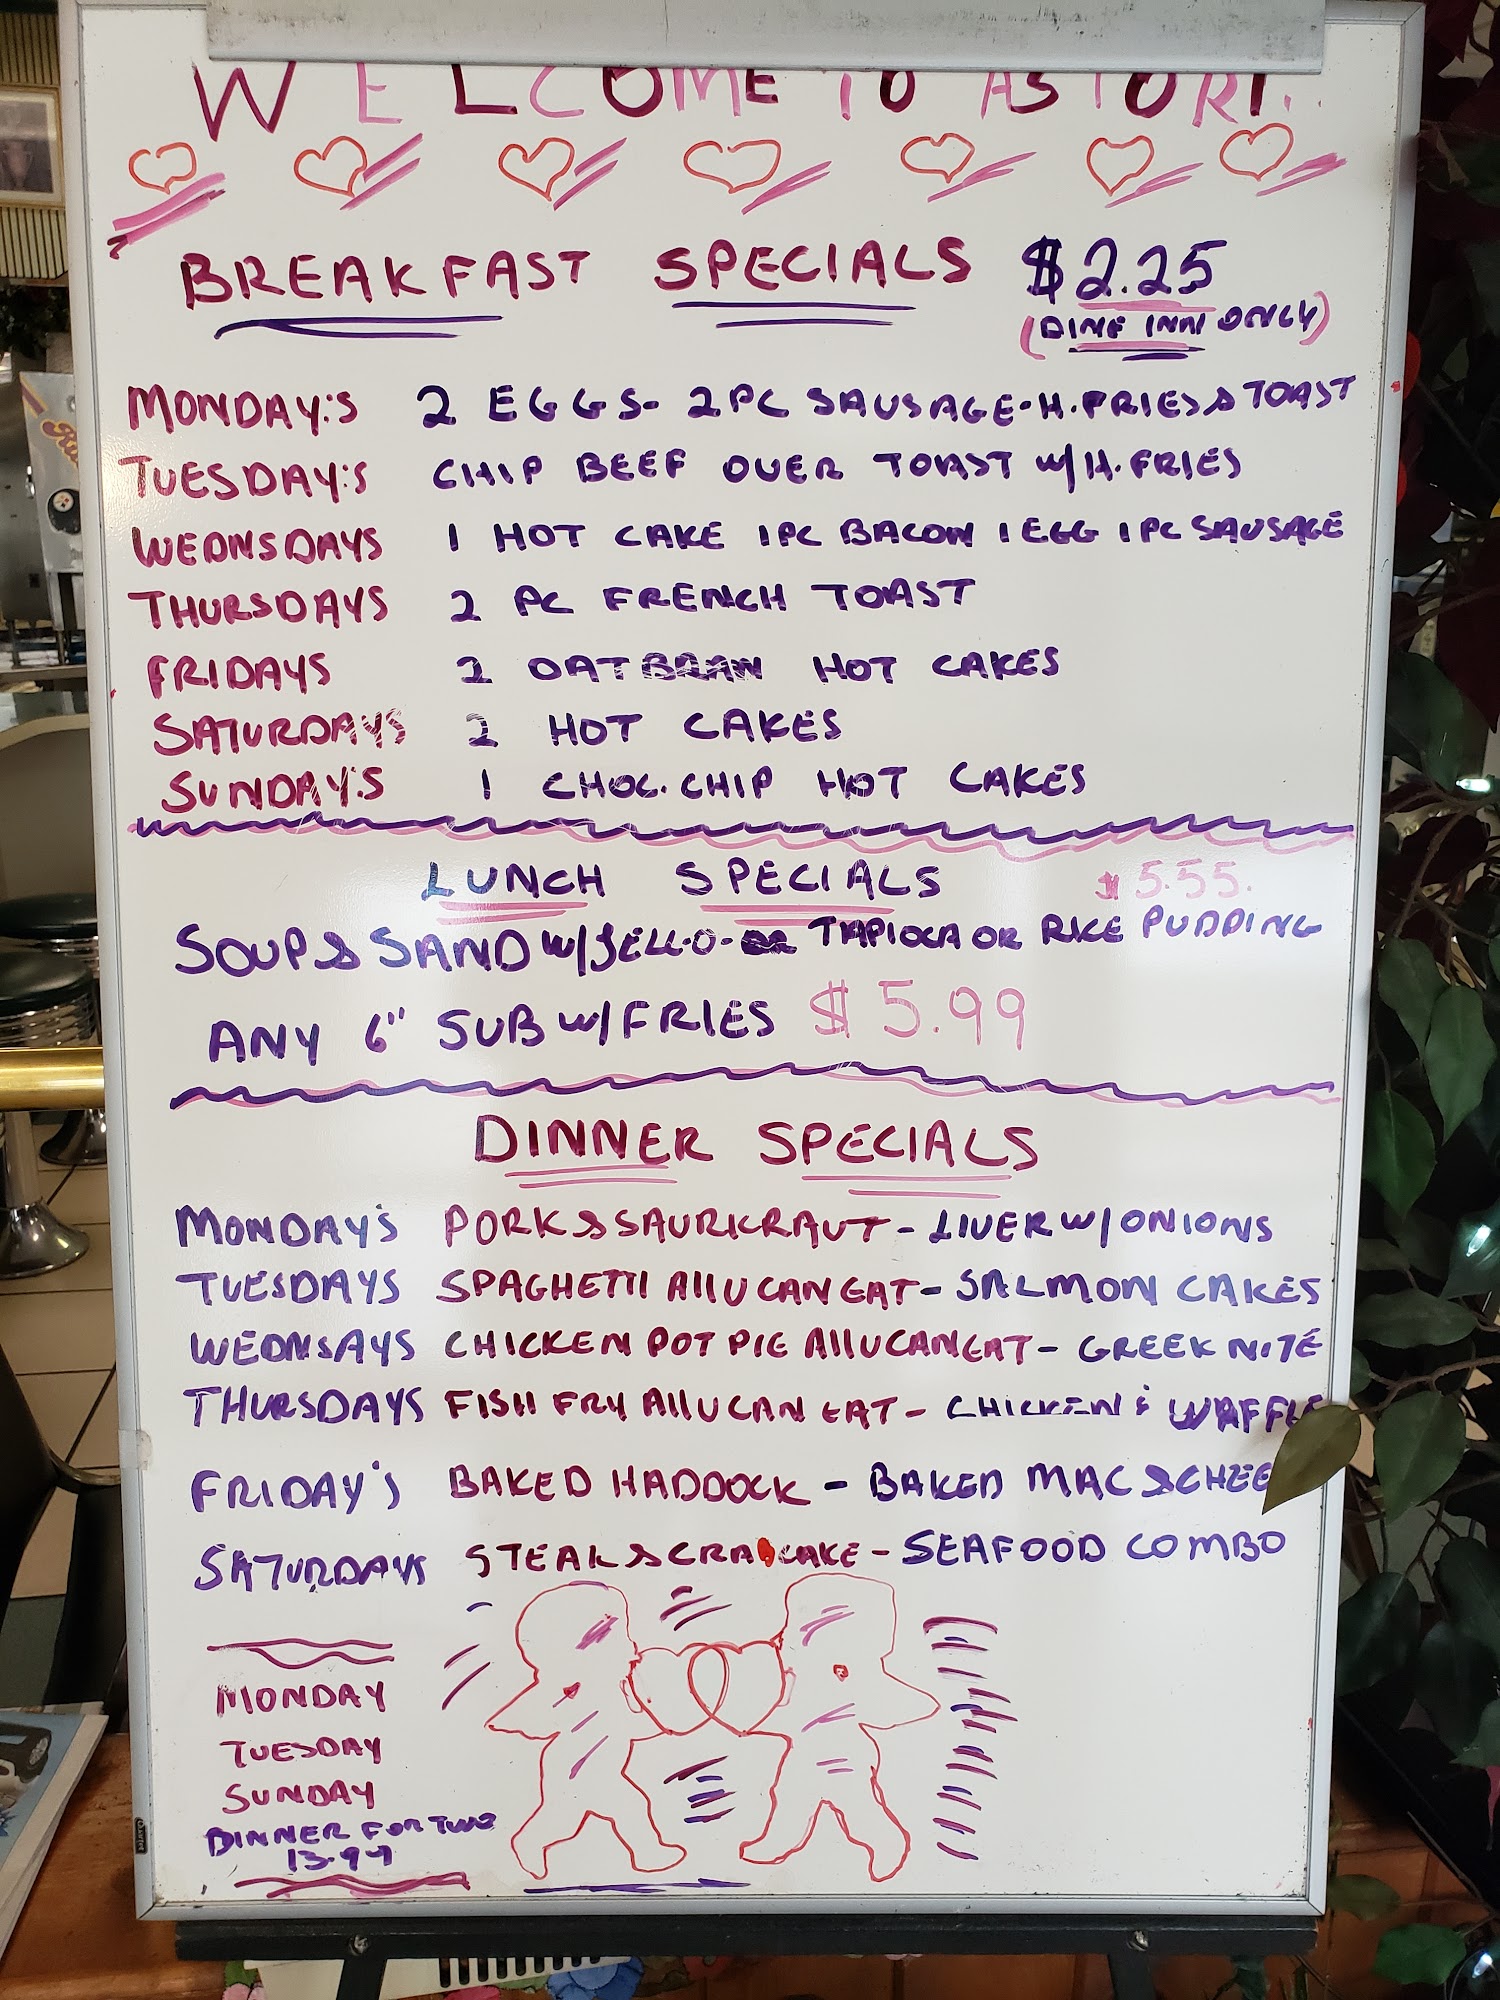 WELCOME TO
BREAKFAST SPECIALS $2.25
(DINE INN ONLY)
MONDAY'S 2 EGGS- 2PC SAUSAGE-H.FRIES & TOAST
TUESDAY'S CHIP BEEF OVER TOAST W/H.FRIES
WEDNSDAYS 1 HOT CAKE 1PC BACON 1 EGG 1PC SAUSAGE
THURSDAYS 2 PC FRENCH TOAST
FRIDAYS 2 OATBRAN HOT CAKES
SATURDAYS 2 HOT CAKES
SUNDAY'S 1 CHOC.CHIP HOT CAKES
LUNCH SPECIALS $5.55.
SOUP & SAND W/JELL-O- OR TAPIOCA OR RICE PUDDING
ANY 6" SUB W/FRIES $5.99
DINNER SPECIALS
MONDAY'S PORK & SAURKRAUT - LIVER W/ONIONS
TUESDAYS SPAGHETTI All U CAN EAT - SALMON CAKES
WEDNSAYS CHICKEN POT PIE All U CAN EAT - GREEK NITE
THURSDAYS FISH FRY All U CAN EAT - CHICKEN & WAFFLE
FRIDAY'S BAKED HADDOCK - BAKED MAC & CHEE
SATURDAYS STEAK & CRABCAKE - SEAFOOD COMBO
MONDAY
TUESDAY
SUNDAY
DINNER FOR TWO
13.99